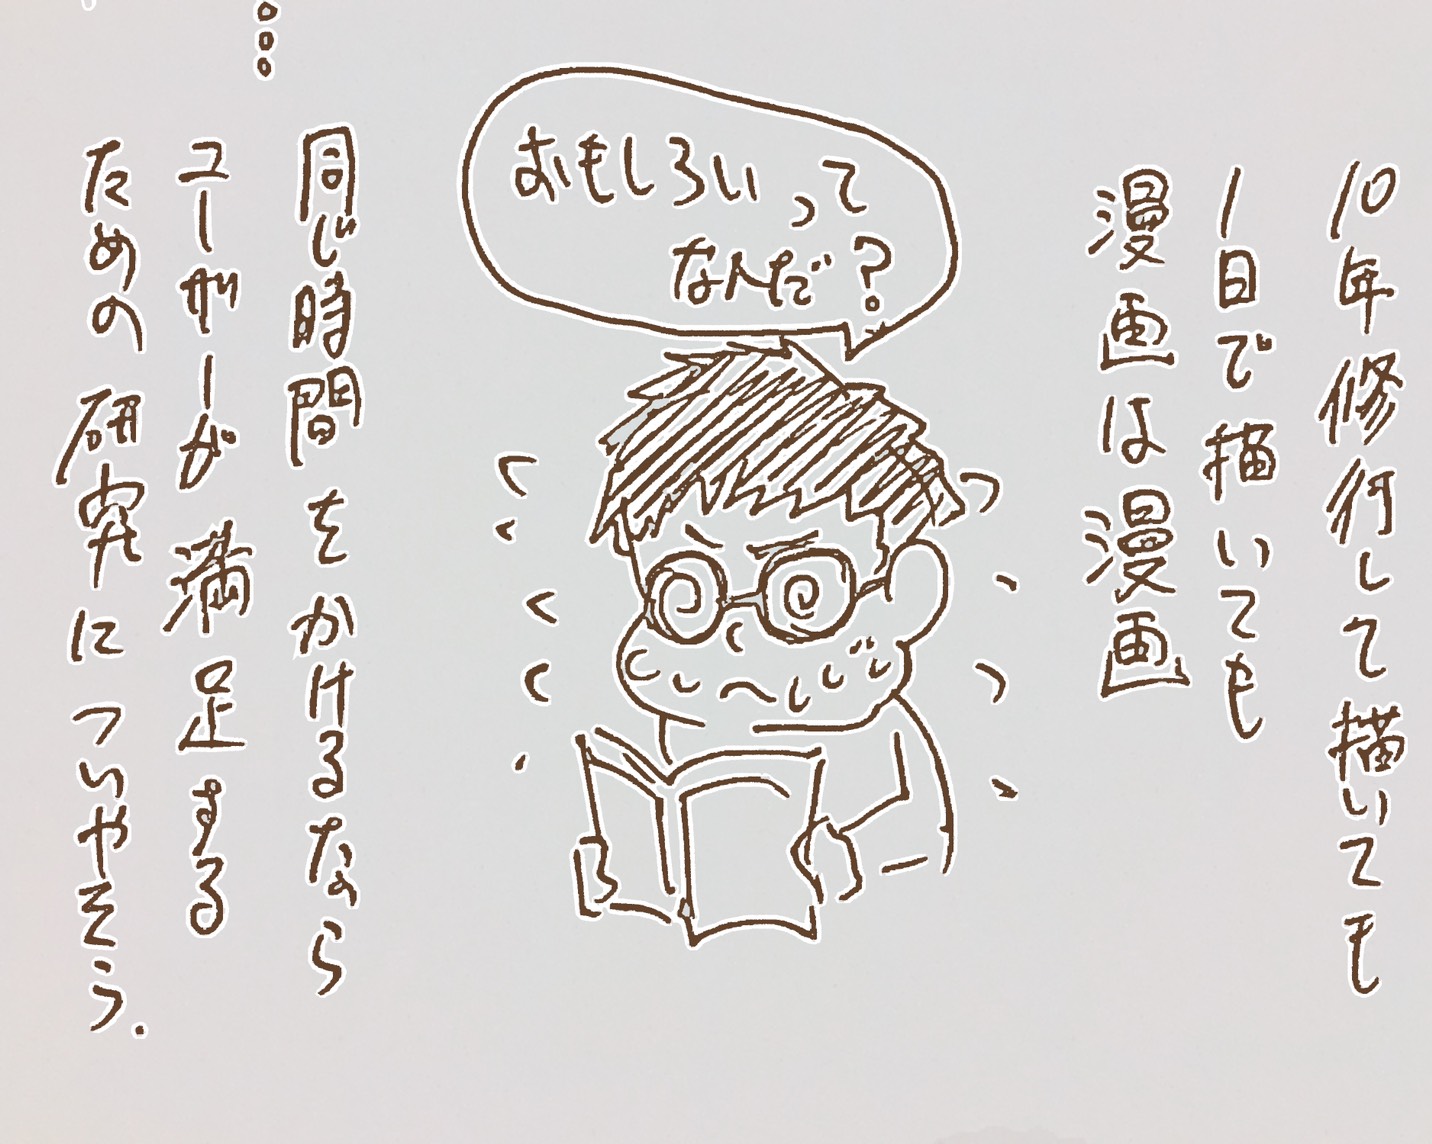 10年修行して描いても
1日で描いても
漫画は漫画
おもしろいって
なんだ?
同じ時間をかけるなら
ユーザーが満足する
ための研究についやそう.